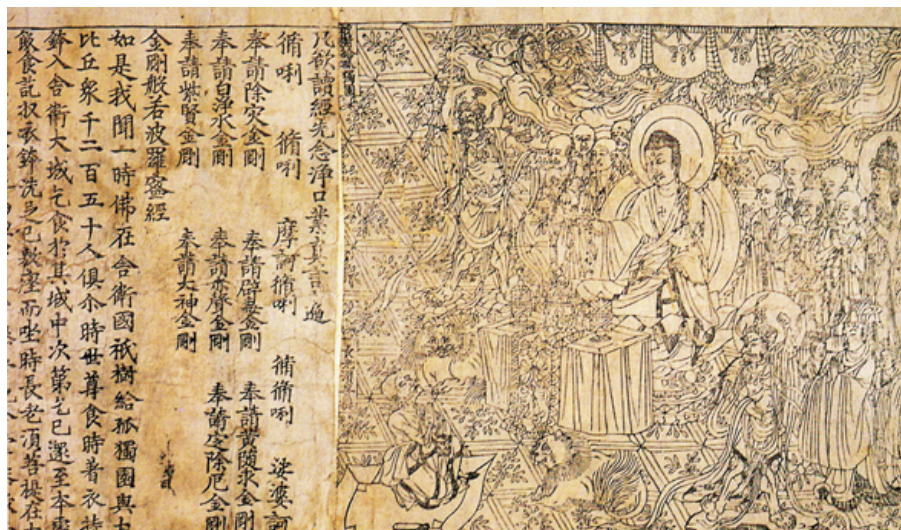 凡欲讀經先念淨口業真言一遍
脩唎 脩唎 摩訶脩唎 脩脩唎 娑婆訶
奉請除灾金剛 奉請辟毒金剛 奉請黃隨求金剛
奉請白淨水金剛 奉請赤聲金剛 奉請定除厄金剛
奉請紫賢金剛 奉請大神金剛
金剛般若波羅蜜經
如是我聞一時佛在舍衛國祇樹給孤獨園與大
比丘衆千二百五十人俱尒時世尊食時著衣持
鉢入舍衛大城乞食於其城中次第乞已還至本處
飯食訖収衣鉢洗足已敷座而坐時長老湏菩提在大